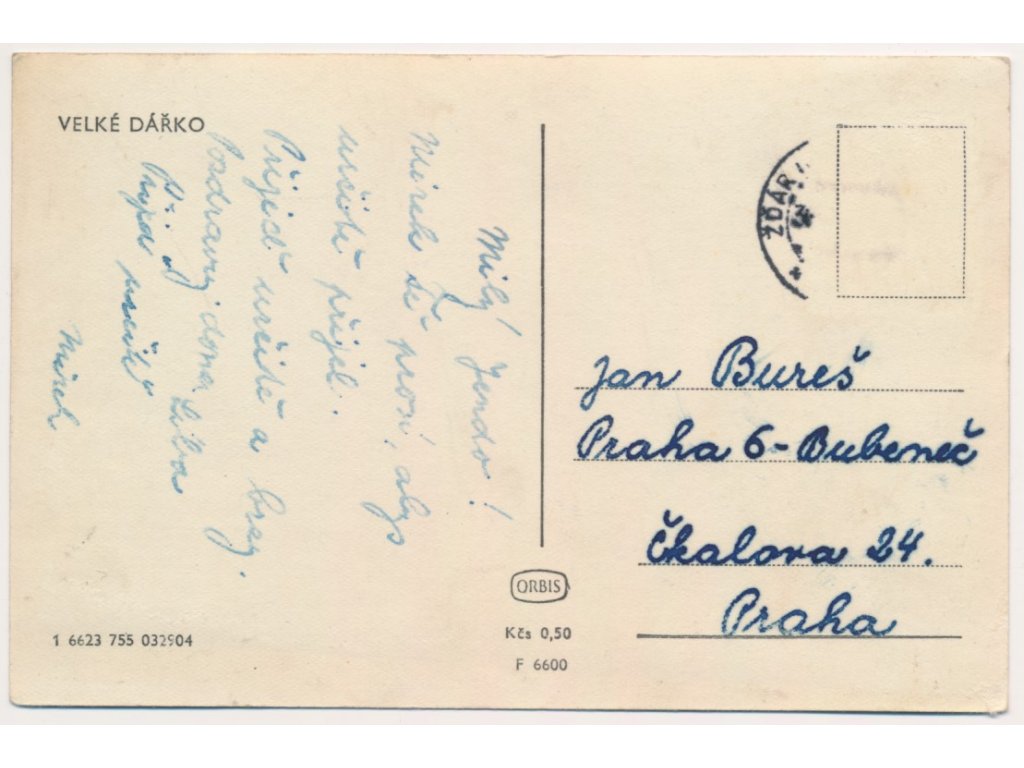 VELKÉ DÁŘKO
Milý Jendo!
Mirek Tě prosí, abys
určitě přijel.
Přijeď určitě a brzy.
Pozdravuj doma. Liba
Přijeď určitě
Mirek
ŽĎÁR
Jan Bureš
Praha 6-Bubeneč
Čkalova 24.
Praha
ORBIS
1 6623 755 032904
Kčs 0,50
F 6600